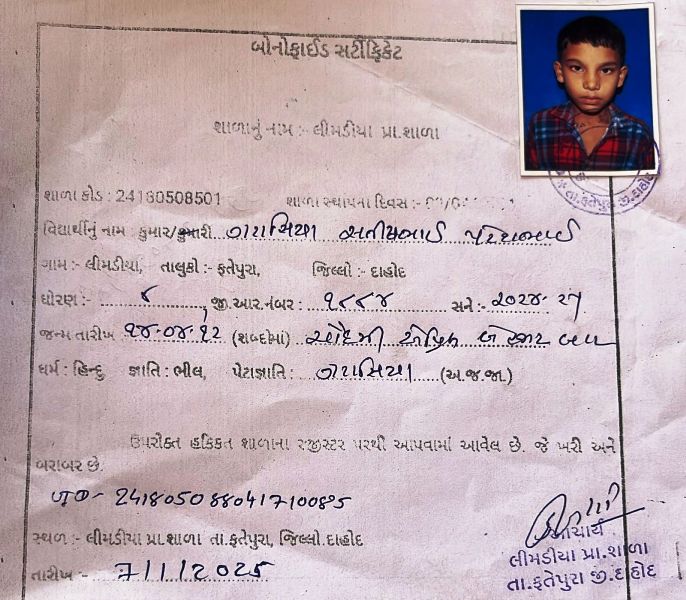 બોનોફાઈડ સર્ટીફિકેટ
શાળાનું નામ :- લીમડીયા પ્રા.શાળા
શાળા કોડ : 24180508501 શાળા સ્થાપના દિવસ :-
વિદ્યાર્થીનું નામ : કુમાર/કુમારી ગરાસિયા
ગામ :- લીમડીયા, તાલુકો :- ફતેપુરા, જિલ્લો :- દાહોદ
ધોરણ :- ૪ જી.આર.નંબર : ૧૮૮૪ સને :- ૨૦૨૪-૨૫
જન્મ તારીખ ૧૪.૦૪.૧૨ (શબ્દોમાં) ચૌદમી એપ્રિલ બે હજાર બાર
ધર્મ : હિન્દુ જ્ઞાતિ : ભીલ, પેટાજ્ઞાતિ : ગરાસિયા (અ.જ.જા.)
ઉપરોક્ત હકિકત શાળાના રજીસ્ટર પરથી આપવામાં આવેલ છે. જે ખરી અને
બરાબર છે.
241805088041710085
સ્થળ :- લીમડીયા પ્રા.શાળા તા.ફતેપુરા, જિલ્લો.દાહોદ
તારીખ :- 7/1/2025
આચાર્ય
લીમડીયા પ્રા.શાળા
તા.ફતેપુરા જી.દાહોદ
તા.ફતેપુરા જી.દાહોદ